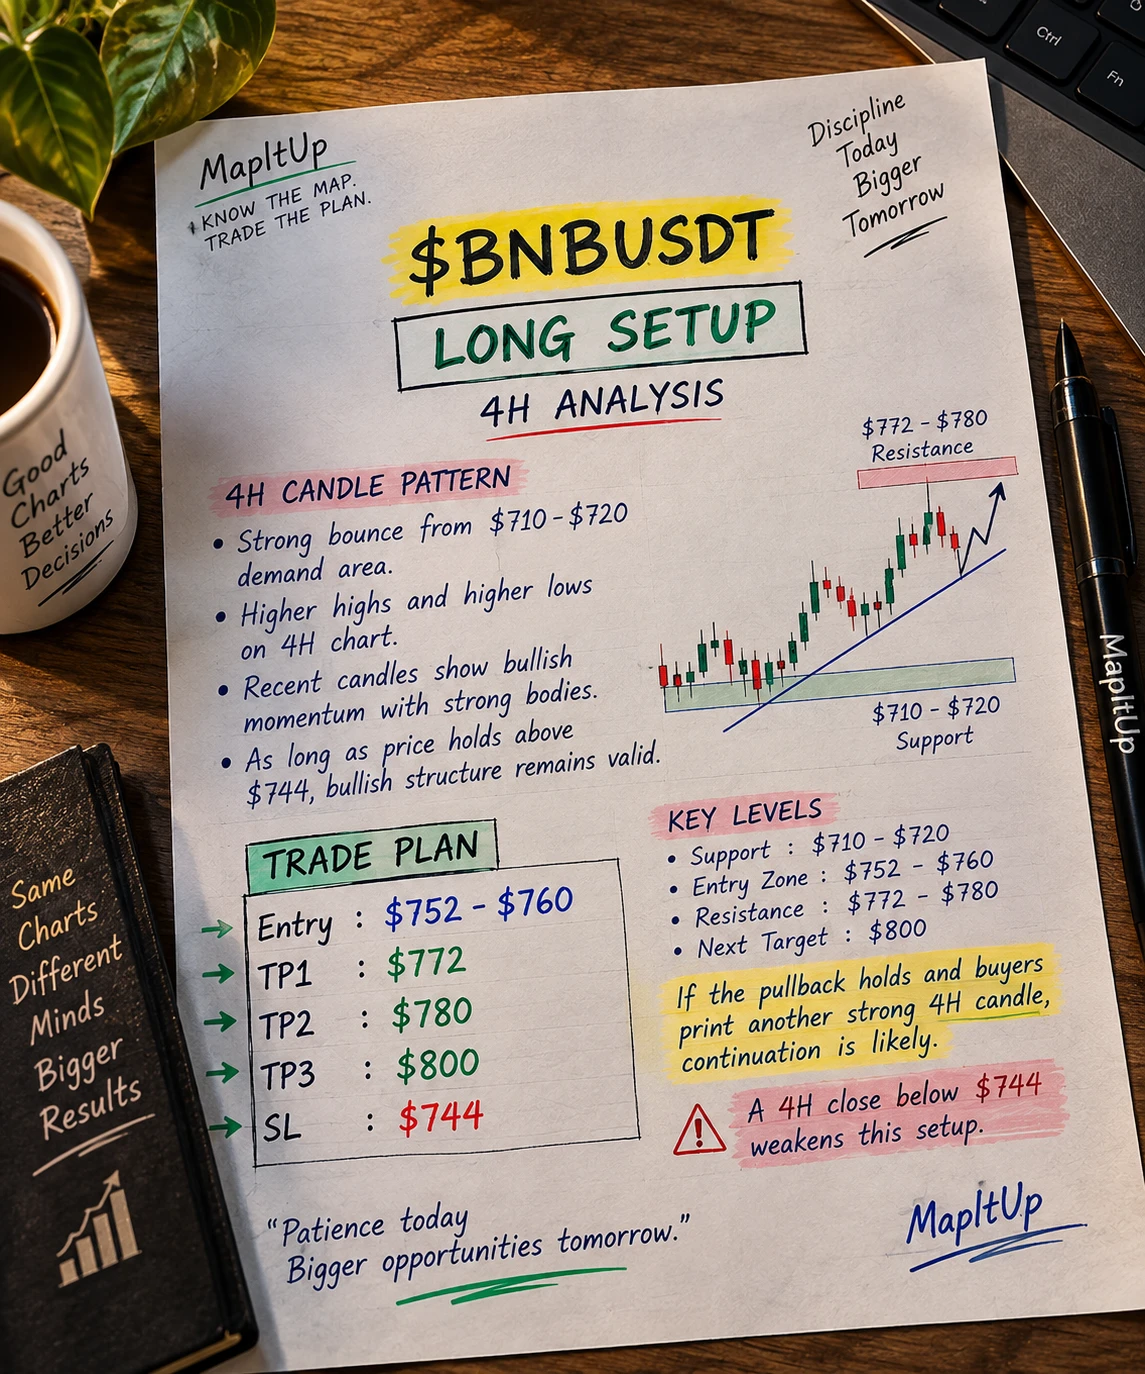 MapItUp
KNOW THE MAP.
TRADE THE PLAN.
Discipline
Today
Bigger
Tomorrow
Ctrl
Fn
$BNBUSDT
LONG SETUP
4H ANALYSIS
Good
Charts
Better
Decisions
4H CANDLE PATTERN
• Strong bounce from $710-$720
demand area.
• Higher highs and higher lows
on 4H chart.
• Recent candles show bullish
momentum with strong bodies.
• As long as price holds above
$744, bullish structure remains valid.
$772 - $780
Resistance
$710 - $720
Support
MapItUp
TRADE PLAN
Entry : $752 - $760
TP1 : $772
TP2 : $780
TP3 : $800
SL : $744
KEY LEVELS
• Support : $710 - $720
• Entry Zone : $752 - $760
• Resistance : $772 - $780
• Next Target : $800
If the pullback holds and buyers
print another strong 4H candle,
continuation is likely.
A 4H close below $744
weakens this setup.
Same
Charts
Different
Minds
Bigger
Results
"Patience today
Bigger opportunities tomorrow."
MapItUp